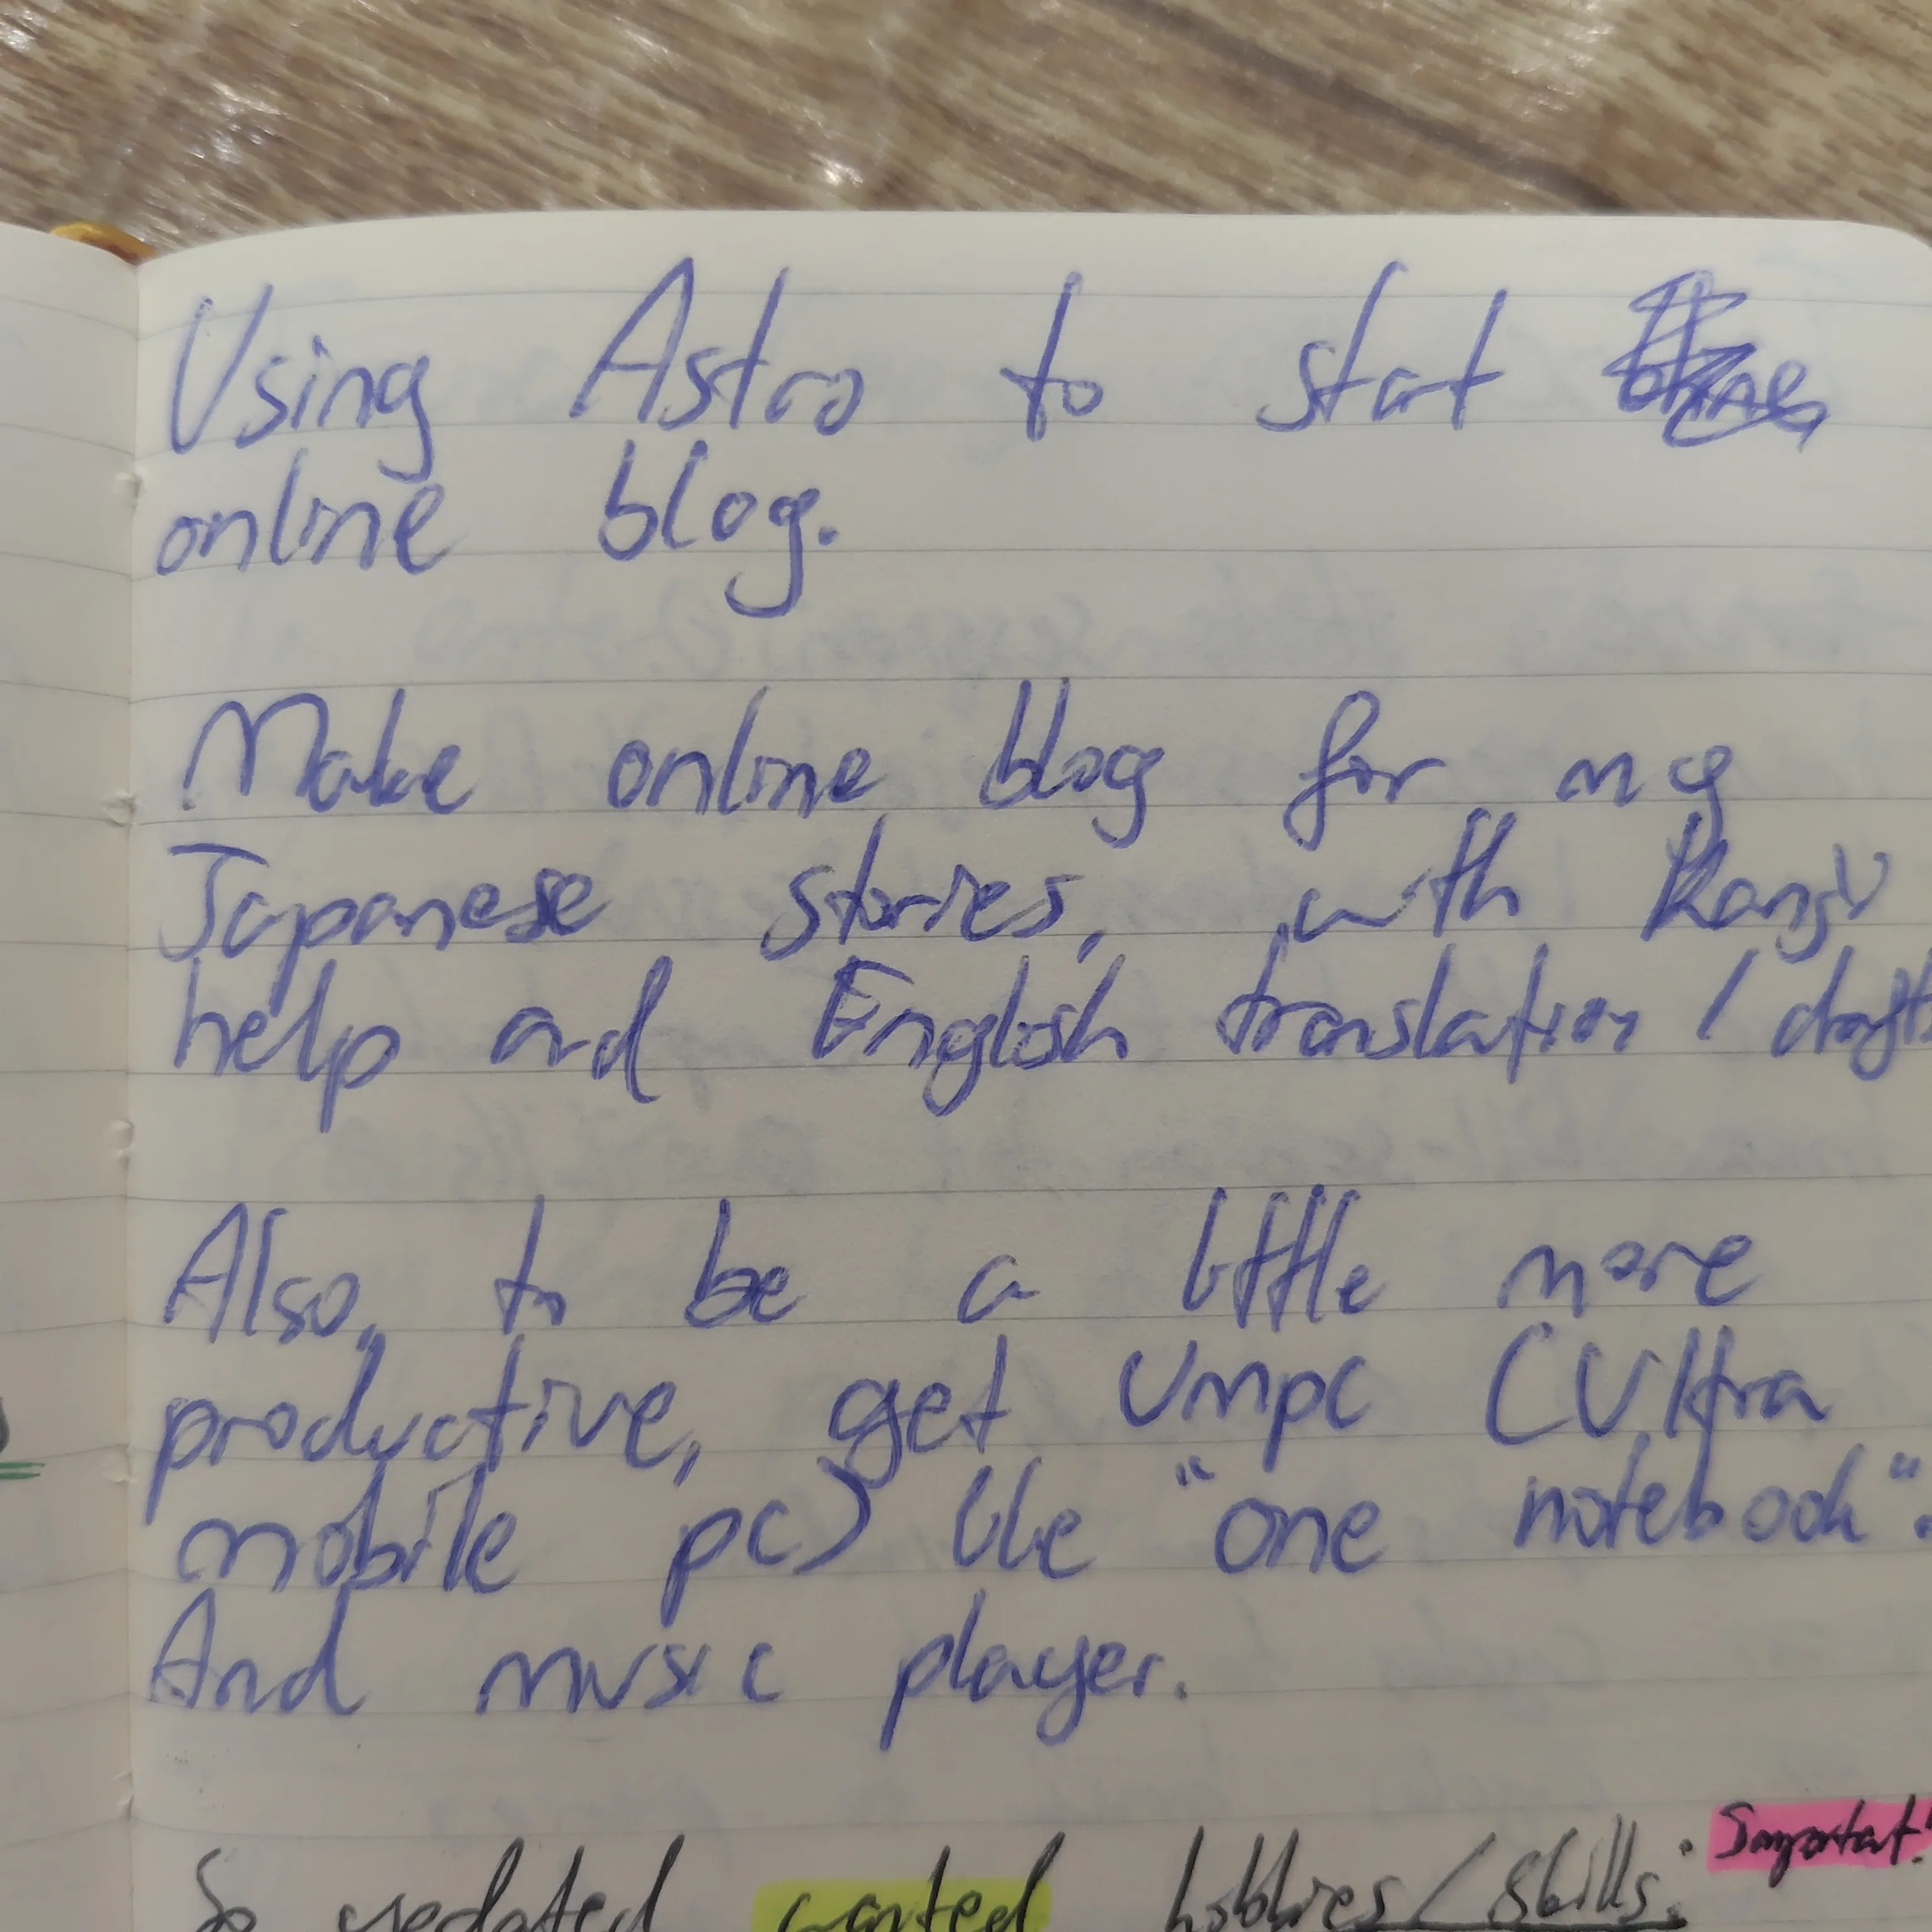 Using Astro to stat
online blog.
Make online blog for my
Japanese stories, with Kanji
help and English translation / draft
Also, to be a little more
productive, get UMPC (Ultra
mobile pc) like "one notebook".
And music player.
Important!
So updated wanted hobbies/skills: